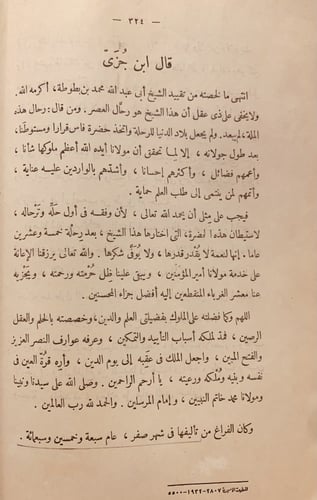 — ٣٢٤ —
قال ابن جُزَىّ
انتهى ما لخصته من تقييد الشيخ أبى عبد الله محمد بن بطوطة، أكرمه الله.
ولا يخفى على ذى عقل أن هذا الشيخ هو رحَّال العصر. ومن قال: رحال هذه
الملة، لم يبعد. ولم يجعل بلاد الدنيا للرحلة واتخذ حضرة فاس قرارا ومستوطَنا،
بعد طول جولانه، إلا لما تحقق أن مولانا أيده الله أعظم ملوكها شأنا،
وأعمهم فضائل، وأكثرهم إحسانا، وأشدّهم بالواردين عليه عناية،
وأتمهم لمن ينتمى إلى طلب العلم حماية.
فيجب على مثلى أن يحمد الله تعالى، لأن وفقه فى أول حَلّه وتَرحاله،
لاستيطان هذه الحضرة، التى اختارها هذا الشيخ، بعد رحلة خمسة وعشرين
عاما. إنها لنعمة لا يُقْدر قدرها، ولا يُوفَّى شكرها. والله تعالى يرزقنا الإعانة
على خدمة مولانا أمير المؤمنين، ويبقى علينا ظل حُرمته ورحمته، ويَجْزيه
عنا معشر الغرباء المنقطعين إليه أفضل جزاء المحسنين.
اللهم كما فضلته على الملوك بفضيلتى العلم والدين، وخصصته بالحلم والعقل
الرصين، فمُدّ لملكه أسباب التأييد والتمكين، وعرفه عوارف النصر العزيز
والفتح المبين، واجعل الملك فى عَقِبه إلى يوم الدين، وأره قُرّة العين فى
نفسه وبنيه ومُلكه ورعيته، يا أرحم الراحمين. وصلى الله على سيدنا ونبينا
ومولانا محمد خاتم النبيين، وإمام المرسلين. والحمد لله رب العالمين.
وكان الفراغ من تأليفها فى شهر صفر، عام سبعة وخمسين وسبعمائة.
المطبعة الأميرية ٢٨٠٧-١٩٣٢-٥٥٠٠